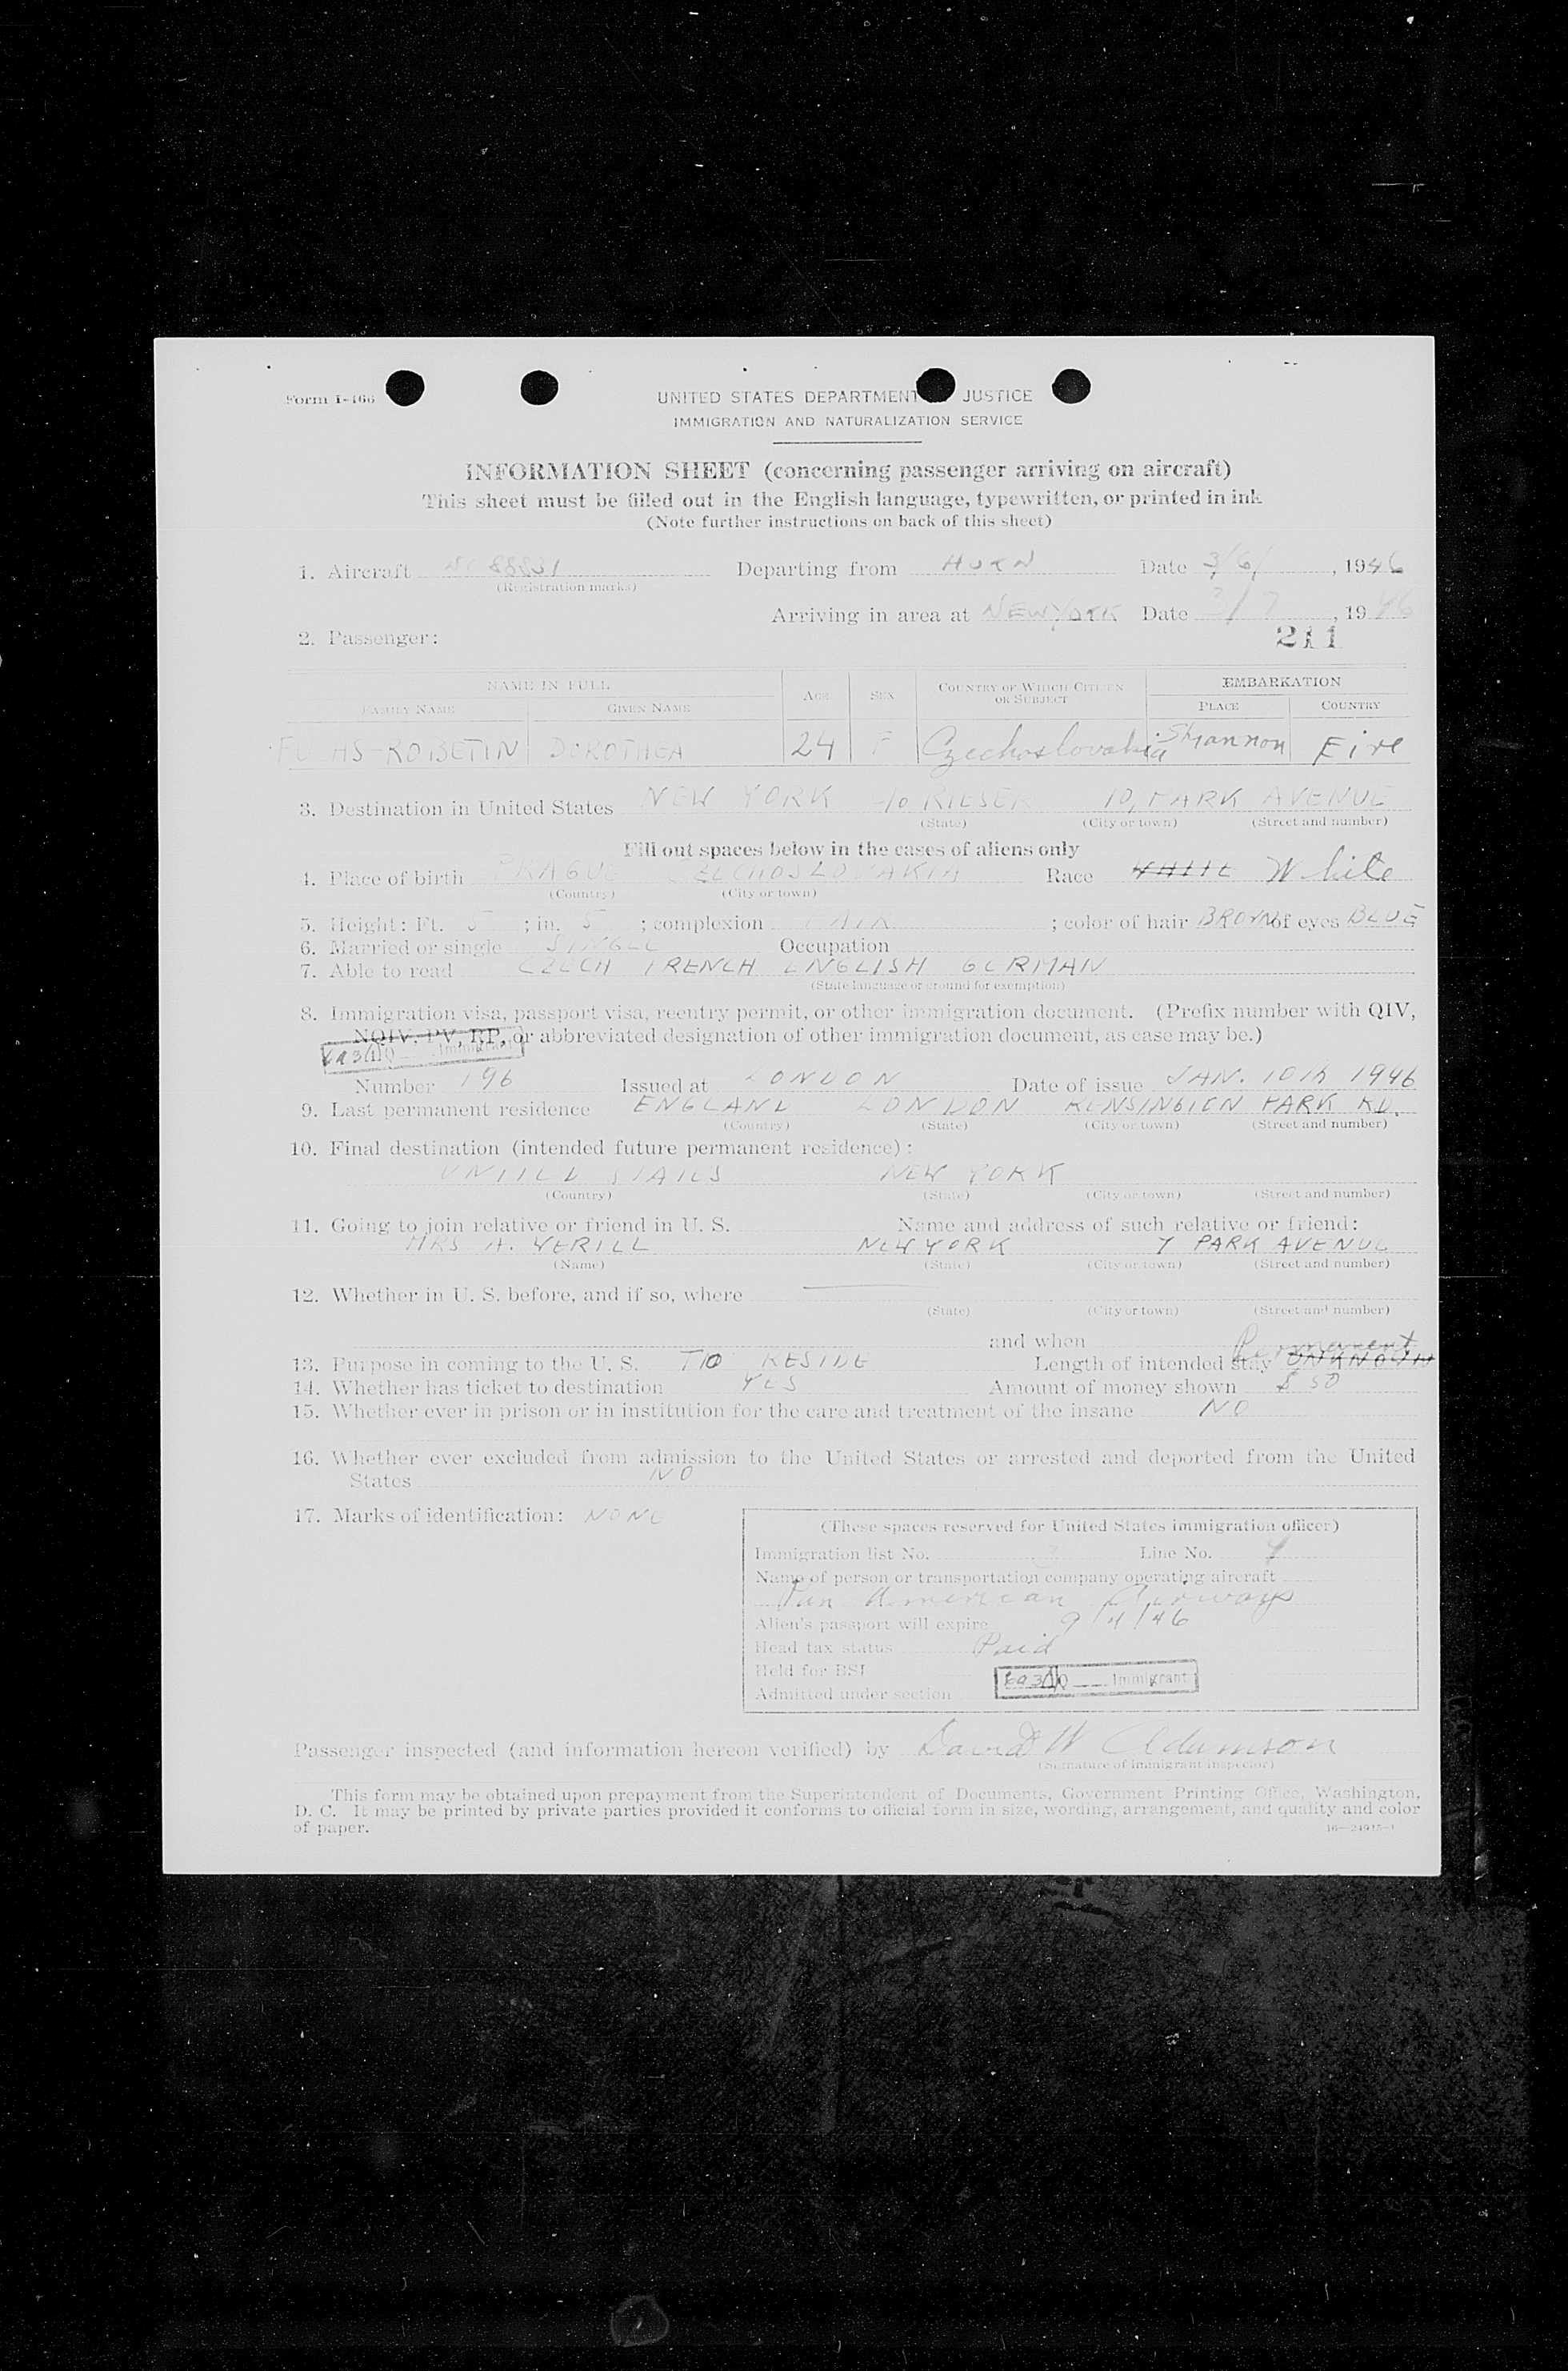 Form I-466
UNITED STATES DEPARTMENT JUSTICE
IMMIGRATION AND NATURALIZATION SERVICE
INFORMATION SHEET (concerning passenger arriving on aircraft)
This sheet must be filled out in the English language, typewritten, or printed in ink
(Note further instructions on back of this sheet)
1. Aircraft Departing from HURN Date 3/6/, 1946
(Registration marks)
Arriving in area at NEW YORK Date 3/7, 1946
2. Passenger: 211
NAME IN FULL AGE SEX COUNTRY OF WHICH CITIZEN OR SUBJECT EMBARKATION
FAMILY NAME GIVEN NAME PLACE COUNTRY
FUCHS-ROBETIN DOROTHEA 24 F Czechoslovakia Shannon Eire
3. Destination in United States NEW YORK c/o RIESER 10, PARK AVENUE
(State) (City or town) (Street and number)
Fill out spaces below in the cases of aliens only
4. Place of birth PRAGUE CZECHOSLOVAKIA Race WHITE White
(Country) (City or town)
5. Height: Ft. 5 ; in. 5 ; complexion FAIR ; color of hair BROWN of eyes BLUE
6. Married or single SINGLE Occupation
7. Able to read CZECH FRENCH ENGLISH GERMAN
(State language or ground for exemption)
8. Immigration visa, passport visa, reentry permit, or other immigration document. (Prefix number with QIV,
NQIV, PV, RP, or abbreviated designation of other immigration document, as case may be.)
6a3(1)Q Immigrant
Number 196 Issued at LONDON Date of issue JAN. 10th 1946
9. Last permanent residence ENGLAND LONDON KENSINGTON PARK RD.
(Country) (State) (City or town) (Street and number)
10. Final destination (intended future permanent residence):
UNITED STATES NEW YORK
(Country) (State) (City or town) (Street and number)
11. Going to join relative or friend in U. S. Name and address of such relative or friend:
MRS A. VERILL NEW YORK 7 PARK AVENUE
(Name) (State) (City or town) (Street and number)
12. Whether in U. S. before, and if so, where
(State) (City or town) (Street and number)
and when
13. Purpose in coming to the U. S. TO RESIDE Length of intended stay UNKNOWN Permanent
14. Whether has ticket to destination YES Amount of money shown £ 50
15. Whether ever in prison or in institution for the care and treatment of the insane NO
16. Whether ever excluded from admission to the United States or arrested and deported from the United
States NO
17. Marks of identification: NONE
(These spaces reserved for United States immigration officer)
Immigration list No. Line No.
Name of person or transportation company operating aircraft
Pan American Airways
Alien's passport will expire 9/4/46
Head tax status Paid
Held for BSI
Admitted under section 6a3(1)Q Immigrant
Passenger inspected (and information hereon verified) by David W Adamson
(Signature of immigrant inspector)
This form may be obtained upon prepayment from the Superintendent of Documents, Government Printing Office, Washington,
D. C. It may be printed by private parties provided it conforms to official form in size, wording, arrangement, and quality and color
of paper.
16—24915-1